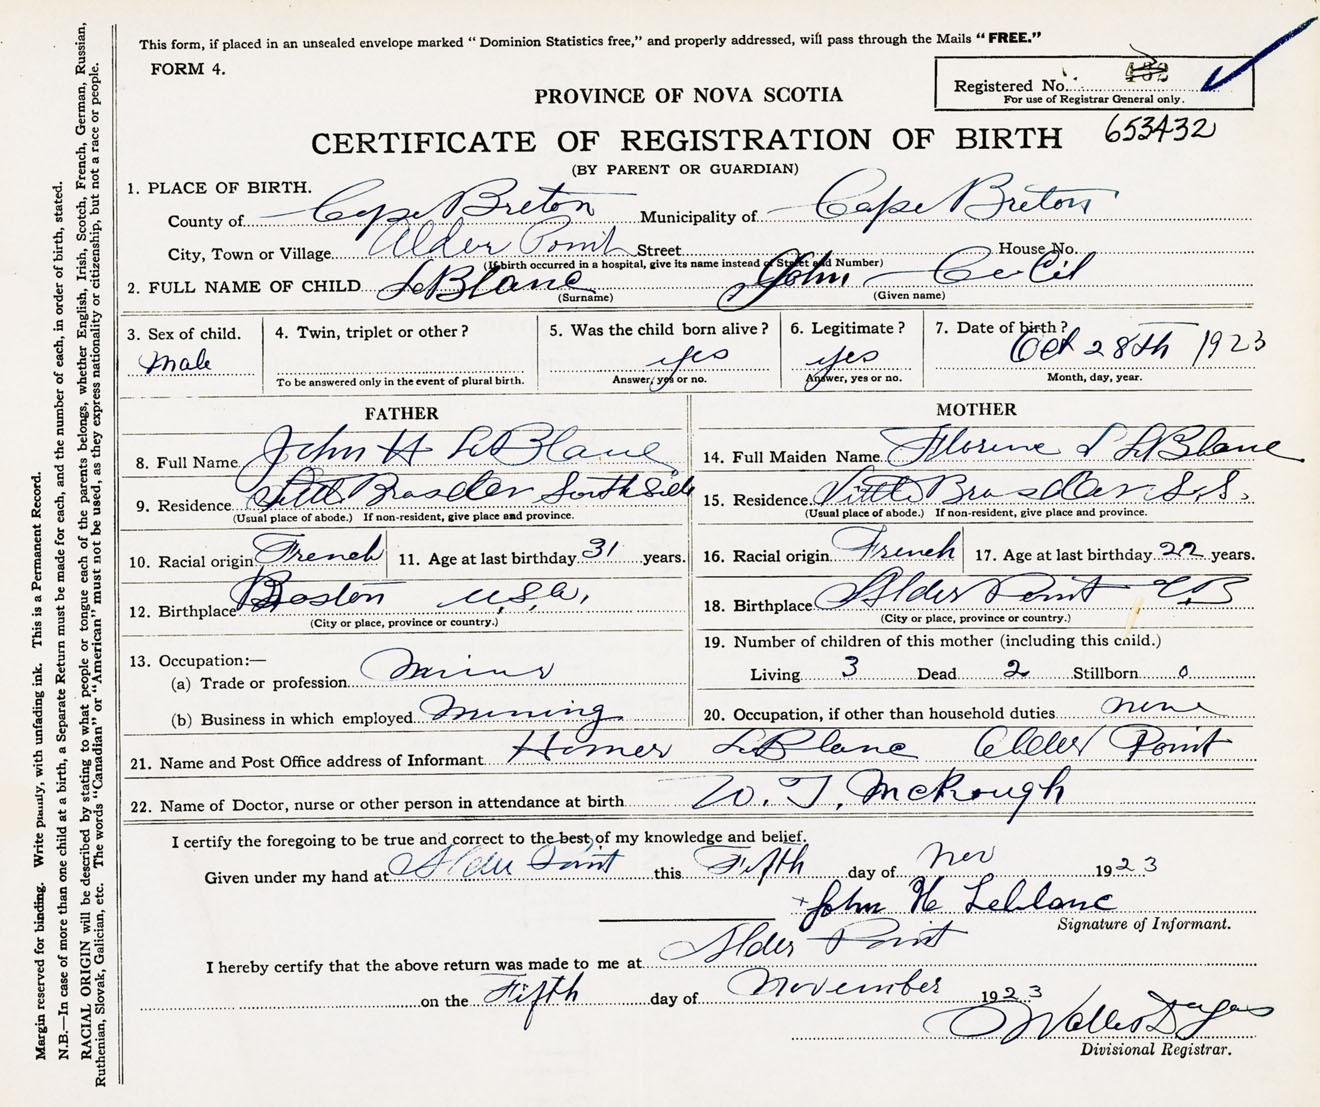 This form, if placed in an unsealed envelope marked "Dominion Statistics free," and properly addressed, will pass through the Mails "FREE."
FORM 4.
Registered No.
For use of Registrar General only.
653432
PROVINCE OF NOVA SCOTIA
CERTIFICATE OF REGISTRATION OF BIRTH
(BY PARENT OR GUARDIAN)
1. PLACE OF BIRTH.
County of Cape Breton Municipality of Cape Breton
City, Town or Village Alder Point Street House No.
(If birth occurred in a hospital, give its name instead of Street and Number)
2. FULL NAME OF CHILD LeBlanc John Cecil
(Surname) (Given name)
3. Sex of child. Male
4. Twin, triplet or other?
To be answered only in the event of plural birth.
5. Was the child born alive? yes
Answer, yes or no.
6. Legitimate? yes
Answer, yes or no.
7. Date of birth? Oct 28th 1923
Month, day, year.
FATHER
8. Full Name John H LeBlanc
9. Residence Little Brasdor South Side
(Usual place of abode.) If non-resident, give place and province.
10. Racial origin French 11. Age at last birthday 31 years.
12. Birthplace Boston U.S.A.
(City or place, province or country.)
13. Occupation:—
(a) Trade or profession Miner
(b) Business in which employed Mining
MOTHER
14. Full Maiden Name Florine L LeBlanc
15. Residence Little Brasdor S.S.
(Usual place of abode.) If non-resident, give place and province.
16. Racial origin French 17. Age at last birthday 22 years.
18. Birthplace Alder Point C.B
(City or place, province or country.)
19. Number of children of this mother (including this child.)
Living 3 Dead 2 Stillborn 0
20. Occupation, if other than household duties none
21. Name and Post Office address of Informant Homer LeBlanc Alder Point
22. Name of Doctor, nurse or other person in attendance at birth W. T. McKeough
I certify the foregoing to be true and correct to the best of my knowledge and belief.
Given under my hand at Alder Point this Fifth day of Nov 1923
John H Leblanc
Signature of Informant.
I hereby certify that the above return was made to me at Alder Point
on the Fifth day of November 1923
Divisional Registrar.
Margin reserved for binding. Write plainly, with unfading ink. This is a Permanent Record.
N.B.—In case of more than one child at a birth, a Separate Return must be made for each, and the number of each, in order of birth, stated.
RACIAL ORIGIN will be described by stating to what people or tongue each of the parents belongs, whether English, Irish, Scotch, French, German, Russian,
Ruthenian, Slovak, Galician, etc. The words "Canadian" or "American" must not be used, as they express nationality or citizenship, but not a race or people.